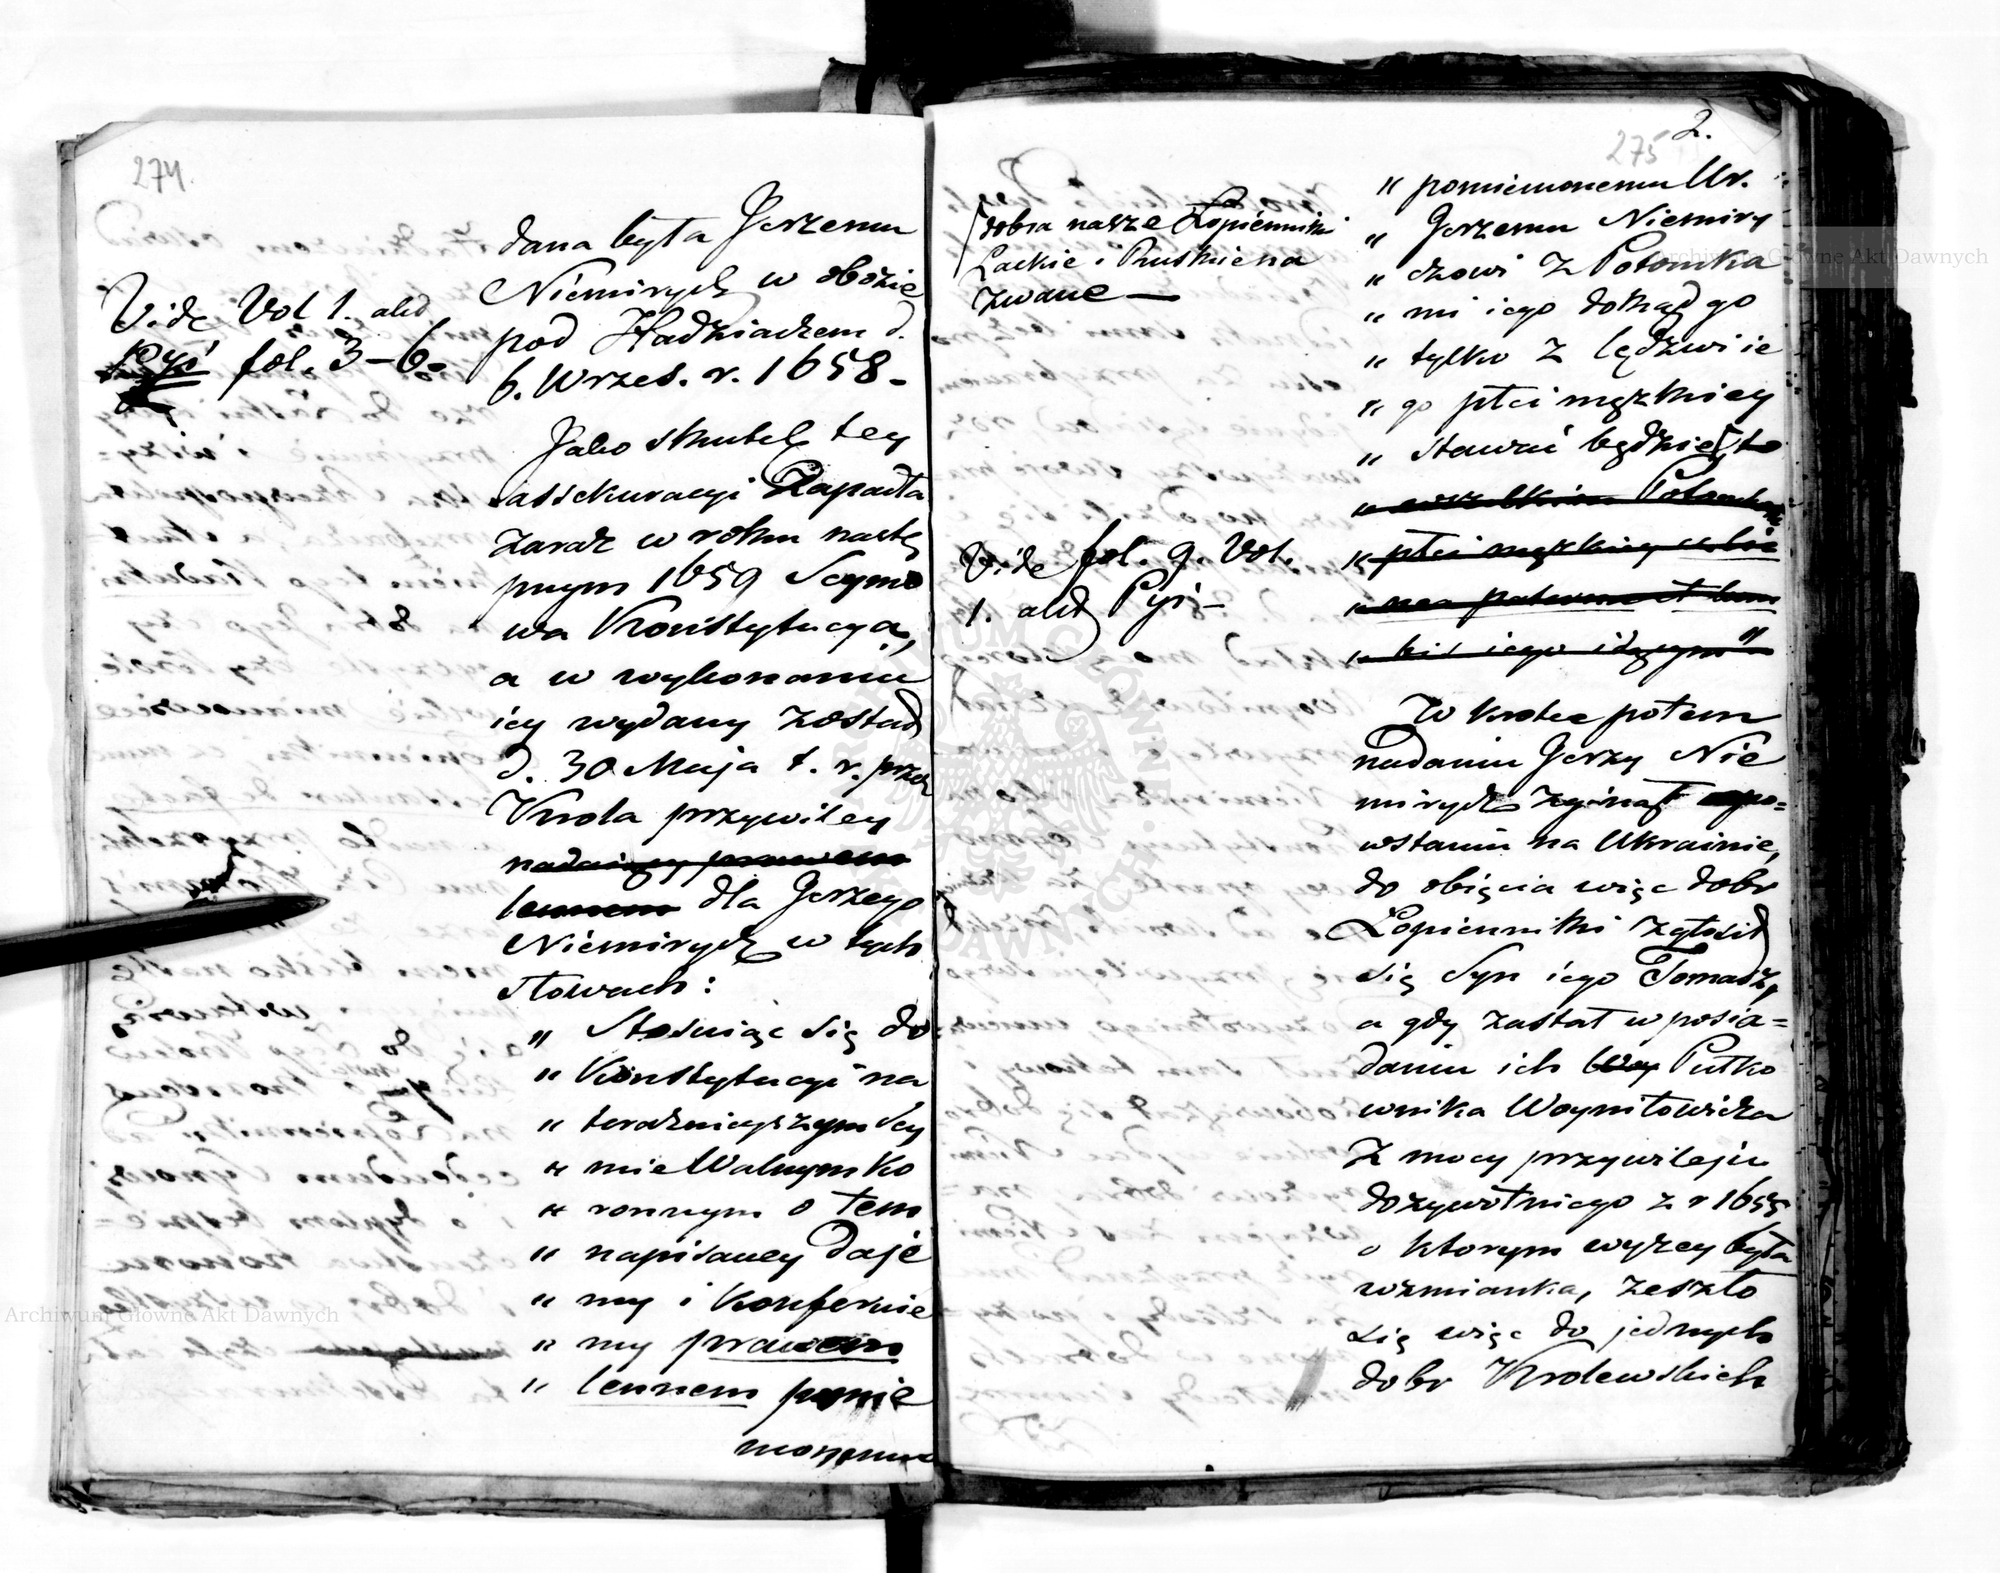 274.
Vide Vol 1. akt
Ryś fol. 3–6.
dana była Jerzemu
Niemirycz w obozie
pod Hadziaczem d.
6. Wrzes. r. 1658 –
Jako skutek tey
assekuracyi Zapadła
zaraz w roku nastę
pnym 1659 Seymo
wa Konstytucya,
a w wykonaniu
iey wydany został
d. 30 Maja t. r. przez
Krola przywiley
nadaiący prawem
lennem dla Jerzego
Niemirycz w tych
słowach:
„ Stosuiąc się do
„ Konstytucyi na
„ teraznieyszym Sey
„ mie Walnym Ko
„ ronnym o tem
„ napisaney daje
„ my i konferuie
„ my prawem
„ lennem pomie
mionemu
2.
275
[dobra nasze Łopienniki
Lackie i Ruskie na
zwane —
Vide fol. 9. Vol.
1. akt Ryś –
„ pomiemonemu Ur.
„ Jerzemu Niemiry
„ czowi z Potomka
„ mi iego dokąd go
„ tylko z lędzwi ie
„ go płci męzkiey
„ stawać będzie[te
„ wszelkim Potomkom
„ płci męzkiey
„
„ bis iego idącym"
W krotce potem
nadaniu Jerzy Nie
mirycz zginął w po=
wstaniu na Ukrainie,
do obięcia więc dobr
Łopienniki zgłosił
się Syn iego Tomasz,
a gdy zastał w posia=
daniu ich Woy Pułko
wnika Woyniłowicza
z mocy przywileju
dozywotniego z r 1655
o ktorym wyzey była
wzmianka, zeszło
się więc do jednych
dobr Krolewskich
Archiwum Główne Akt Dawnych
Archiwum Główne Akt Dawnych
ARCHIWUM GŁÓWNE AKT DAWNYCH